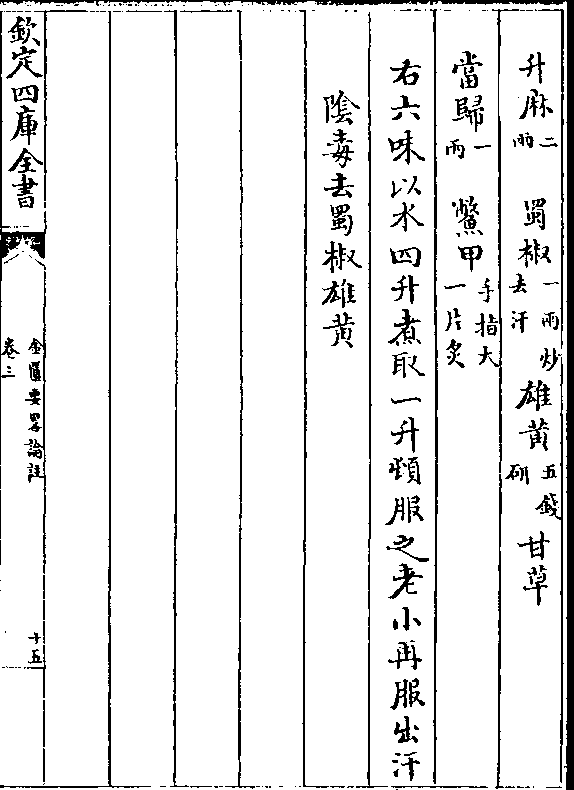 升麻二兩 蜀椒一兩炒去汗 雄黄五錢研 甘草
當歸一兩 鱉甲手指大一片炙
右六味以水四升煮取一升頓服之老小再服出汗
陰毒去蜀椒雄黄
欽定四庫全書
金匱要畧論註
卷三
十五